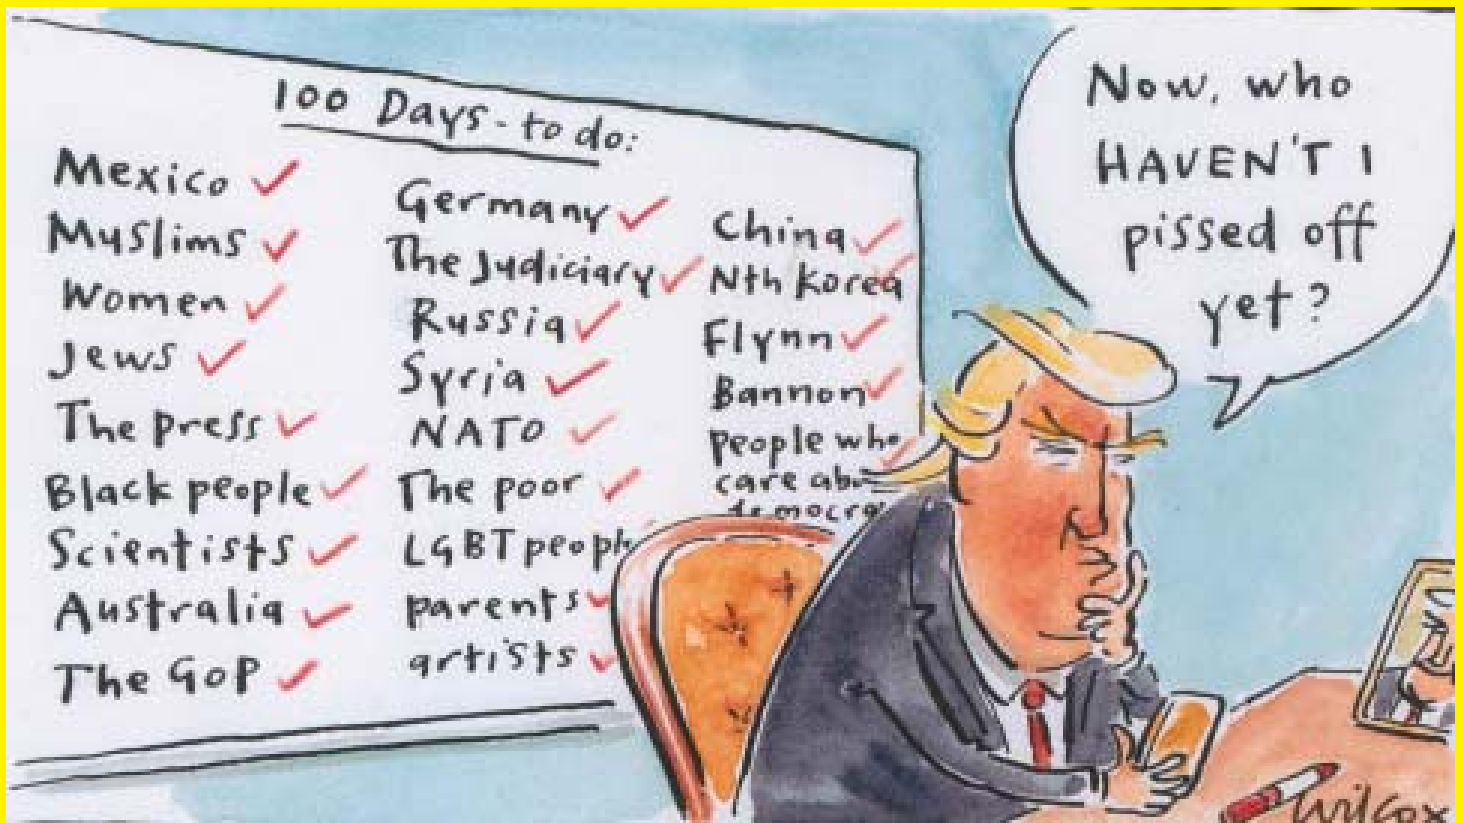 100 Days - to do:
Mexico
Muslims
Women
Jews
The press
Black people
Scientists
Australia
The GOP
Germany
The Judiciary
Russia
Syria
NATO
The poor
LGBT people
parents
artists
China
Nth Korea
Flynn
Bannon
people who
care abou
democra
Now, who
HAVEN'T I
pissed off
yet?
Wilcox